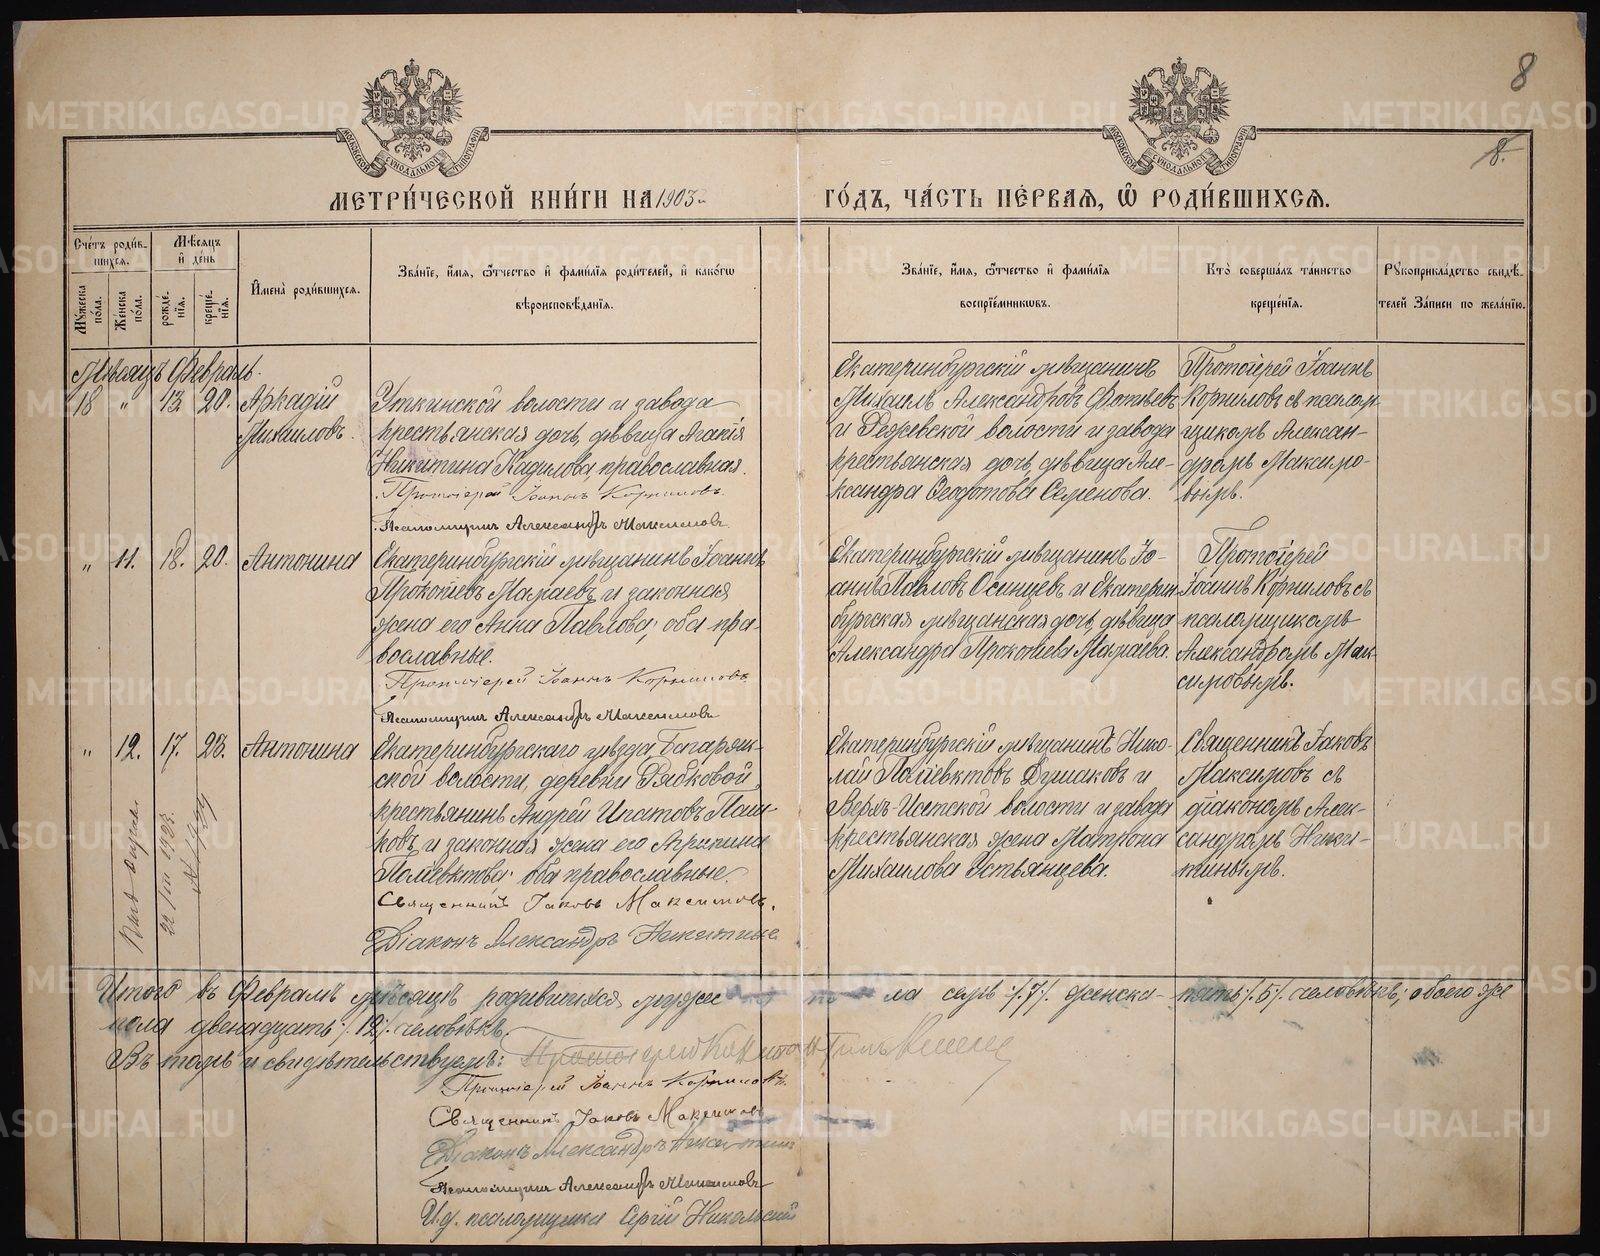 8
8.
МЕТРИ́ЧЕСКОЙ КНИ́ГИ НА 1903й ГО́ДЪ, ЧА́СТЬ ПЕ́РВАЯ, Ѡ РОДИ́ВШИХСЯ.
МОСКОВСКОЙ СѴНОДАЛЬНОЙ ТИПОГРАФІИ
МОСКОВСКОЙ СѴНОДАЛЬНОЙ ТИПОГРАФІИ
Сче́тъ роди́в-
шихся.
Му́жеска по́ла.
Же́нска по́ла.
Мѣ́сяцъ и́ де́нь
рожде́-
нїя.
креще́-
нїя.
И҆мена̀ роди́вшихся.
Зва́нїе, и҆́мя, ѻ҆́тчество и҆ фами́лїя роди́телей, и҆ како́гѡ
вѣроисповѣ́данїя.
Зва́нїе, и҆́мя, ѻ҆́тчество и҆ фами́лїя
воспрїе́мниковъ.
Кто̀ соверша́лъ та́инство
креще́нїя.
Рꙋкоприкла́дство свидѣ́-
телей за́писи по жела́нїю.
Мѣсяцъ Февраль.
18 " 13. 20. Аркадій
Михаиловъ.
Уткинской волости и завода
крестьянская дочь, дѣвица Агапія
Никитина Кадилова, православная.
Протоіерей Іоаннъ Корниловъ.
Псаломщикъ Александръ Максимовъ.
Екатеринбургскій мѣщанинъ
Михаилъ Александровъ Фотіевъ
и Режевской волости и завода
крестьянская дочь, дѣвица Але-
ксандра Ѳеодотова Семенова.
Протоіерей Іоаннъ
Корниловъ съ псалом-
щикомъ Алексан-
дромъ Максимо-
вымъ.
" 11. 18. 20. Антонина
Екатеринбургскій мѣщанинъ Іоаннъ
Прокопіевъ Мамаевъ и законная
жена его Анна Павлова; оба пра-
вославные.
Протоіерей Іоаннъ Корниловъ
Псаломщикъ Александръ Максимовъ
Екатеринбургскій мѣщанинъ Іо-
аннъ Павловъ Осинцевъ и Екатерин-
бургская мѣщанская дочь, дѣвица
Александра Прокопіева Мамаева.
Протоіерей
Іоаннъ Корниловъ съ
псаломщикомъ
Александромъ Мак-
симовымъ.
" 12. 17. 23. Антонина
22/III 1923.
Екатеринбургскаго уѣзда, Багаряк-
ской волости, деревни Рябковой,
крестьянинъ Андрей Ипатовъ Паш-
ковъ и законная жена его Агрипина
Поліевктова; оба православные.
Священникъ Іаковъ Максимовъ.
Діаконъ Александръ Никитинъ
Екатеринбургскій мѣщанинъ Нико-
лай Поліевктовъ Душаковъ и
Верхъ-Исетской волости и завода
крестьянская жена Матрона
Михаилова Устьянцева.
Священникъ Іаковъ
Максимовъ съ
діакономъ Алек-
сандромъ Ники-
тинымъ.
Итого въ Февралѣ мѣсяцѣ родившихся мужес по ла семь /.7/. женска- пять /.5/. человѣкъ; обоего же
пола двенадцать /.12/. человѣкъ.
Въ томъ и свидѣтельствуемъ:
Протоіерей Іоаннъ Корниловъ.
Священникъ Іаковъ Максимовъ
Діаконъ Александръ Никитинъ
Псаломщикъ Александръ Максимовъ
И.д. псаломщика Сергій Никольскій
METRIKI.GASO-URAL.RU